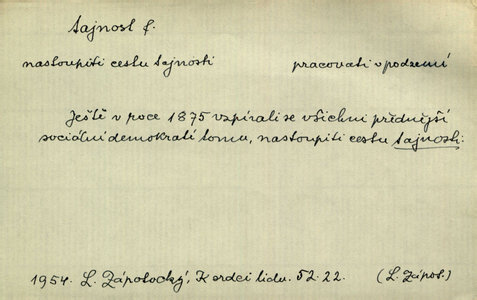 tajnost f.
nastoupiti cestu tajnosti pracovati v podzemí
Ještě v roce 1875 vzpírali se všichni přednější
sociální demokrati tomu, nastoupiti cestu tajnosti.
1954. L. Zápotocký, K srdci lidu. 52.22. (L. Zápot.)